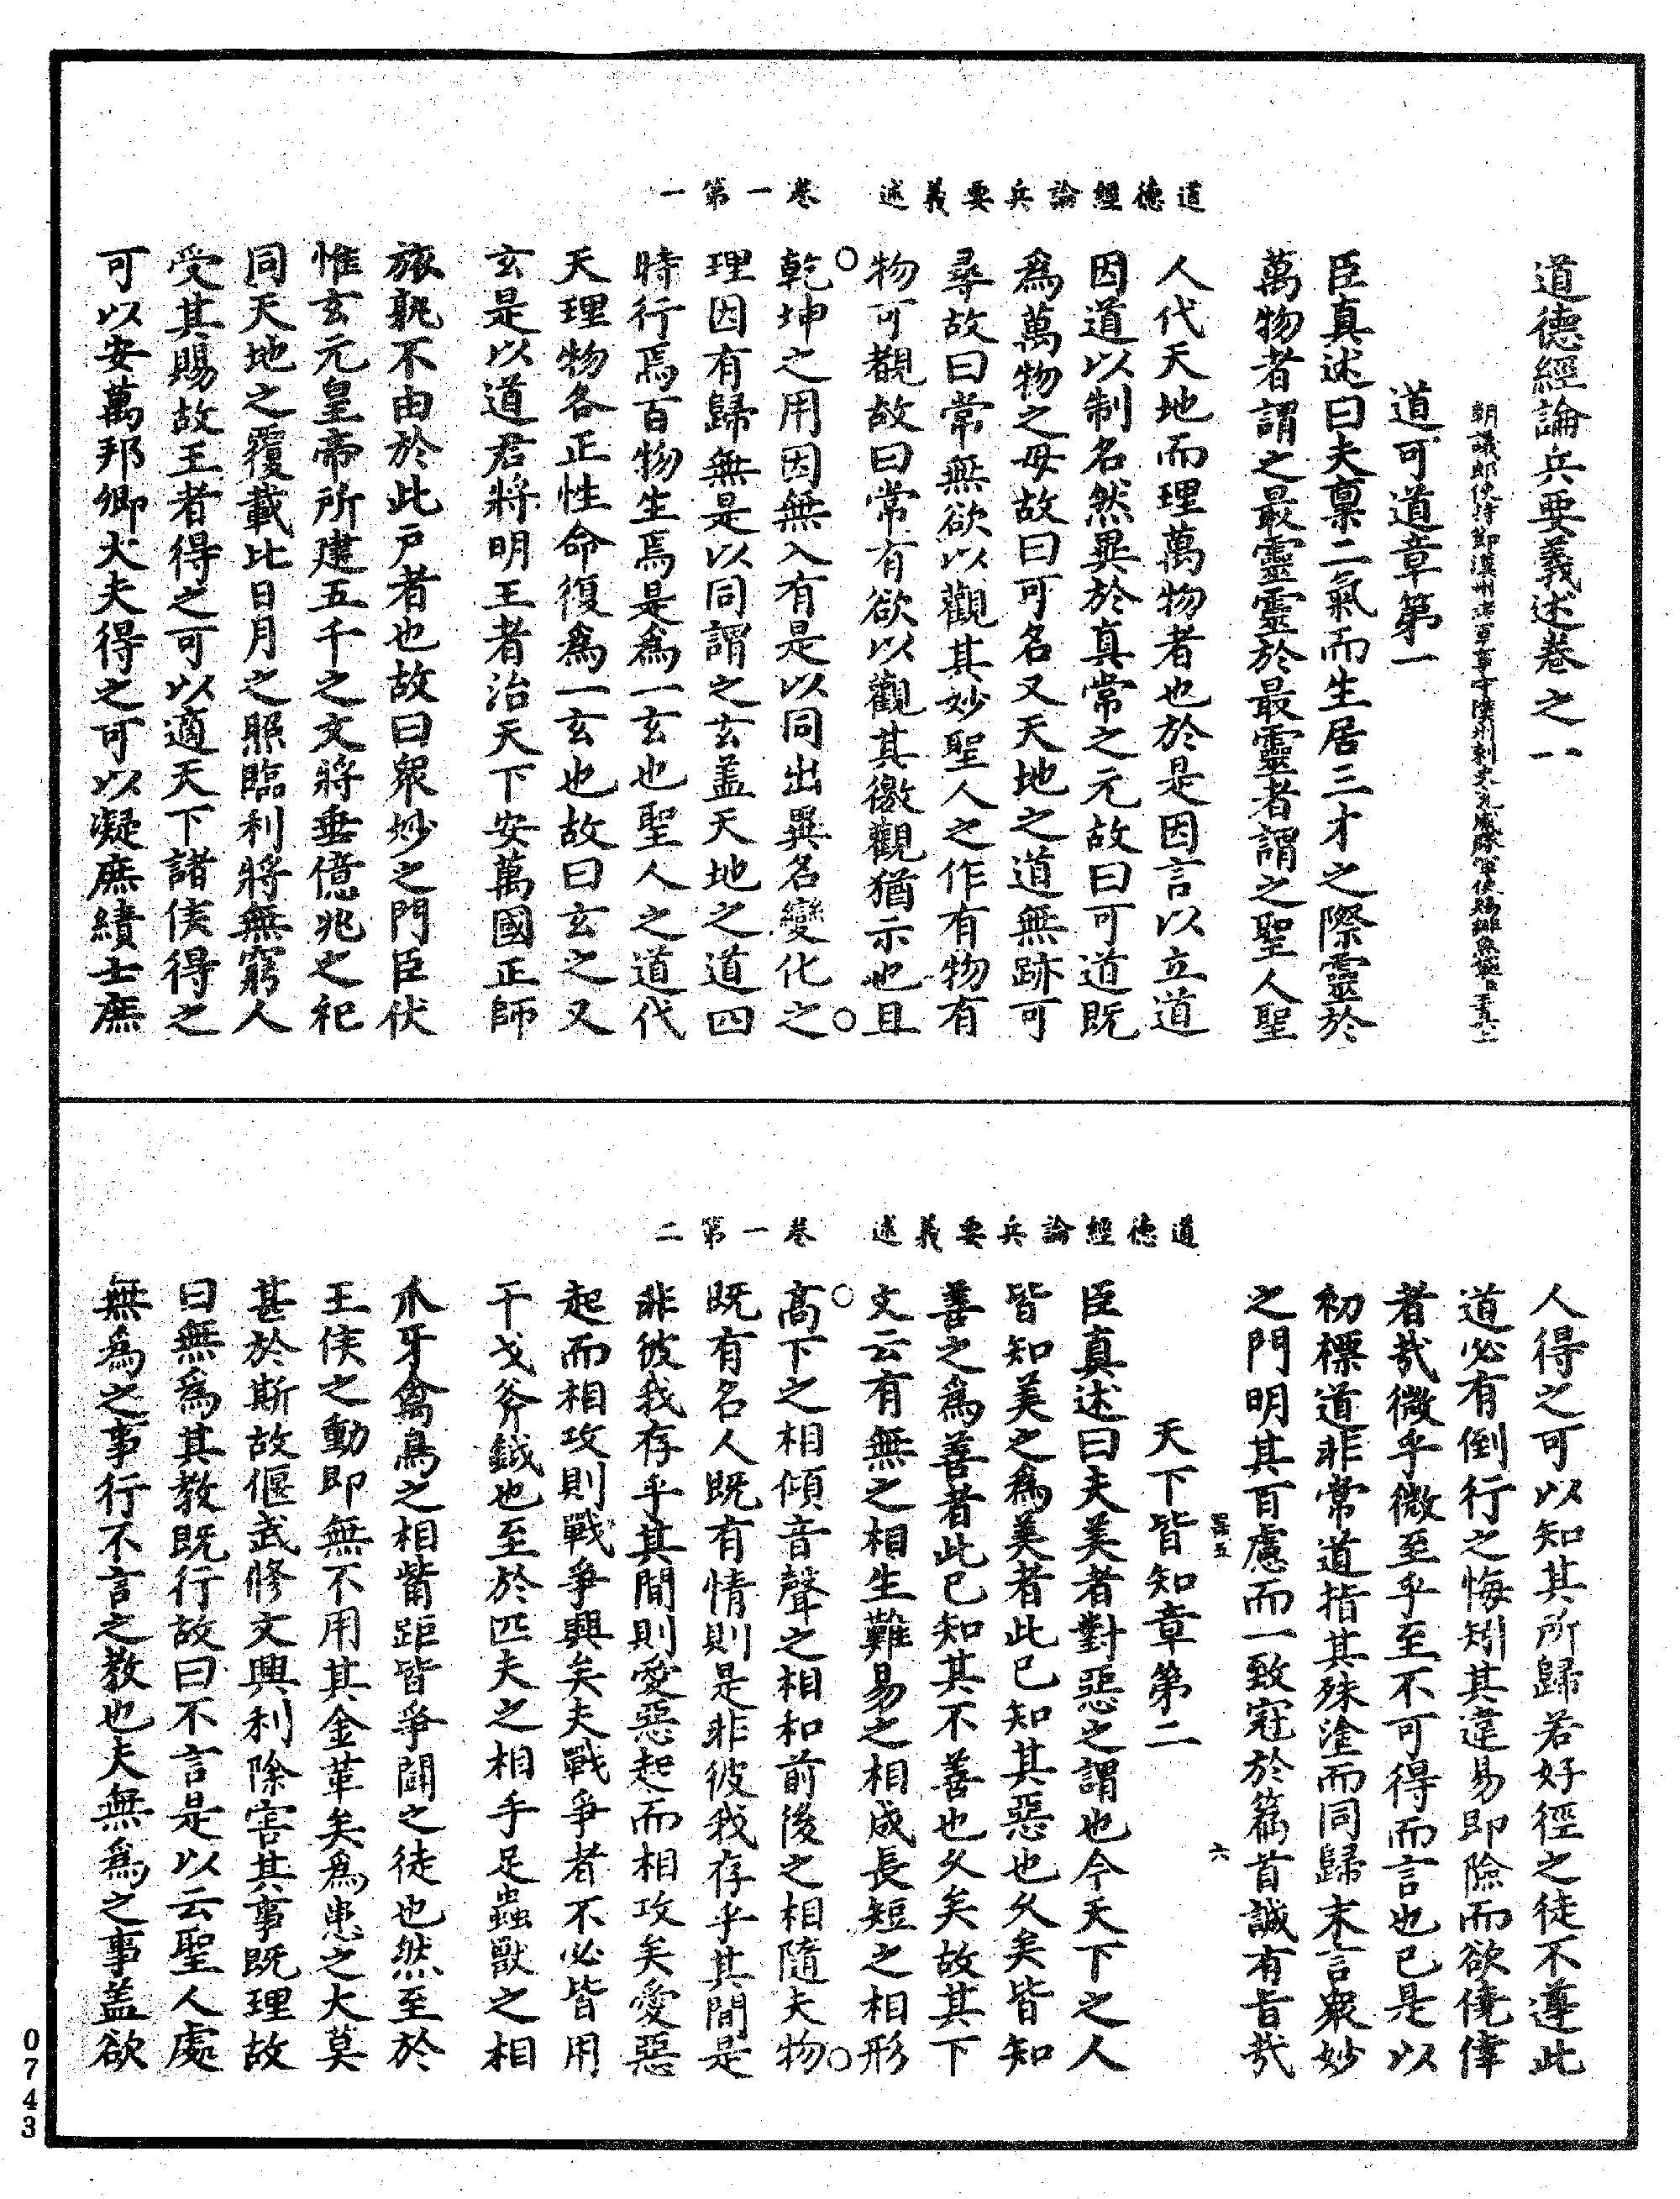 道德經論兵要義述　卷一第一
道德經論兵要義述卷之一
朝議郎使持節漢州諸軍事守漢州刺史充威勝軍使賜緋魚袋臣王真上
道可道章第一
臣真述曰夫禀二氣而生居三才之際靈於
萬物者謂之最靈靈於最靈者謂之聖人聖
人代天地而理萬物者也於是因言以立道
因道以制名然異於真常之元故曰可道既
為萬物之母故曰可名又天地之道無跡可
尋故曰常無欲以觀其妙聖人之作有物有
物可觀故曰常有欲以觀其徼觀猶示也且
乾坤之用因無入有是以同出異名變化之
理因有歸無是以同謂之玄盖天地之道四
時行焉百物生焉是為一玄也聖人之道代
天理物各正性命復為一玄也故曰玄之又
玄是以道君將明王者治天下安萬國正師
旅孰不由於此戶者也故曰衆妙之門臣伏
惟玄元皇帝所建五千之文將垂億兆之祀
同天地之覆載比日月之照臨利將無窮人
受其賜故王者得之可以適天下諸侯得之
可以安萬邦卿大夫得之可以凝庶績士庶
道德經論兵要義述　卷一第二
人得之可以知其所歸若好徑之徒不遵此
道必有倒行之悔矧其違易即險而欲僥倖
者哉微乎微至乎至不可得而言也已是以
初標道非常道指其殊塗而同歸末言衆妙
之門明其百慮而一致冠於篇首誠有旨哉
六
天下皆知章第二
臣真述曰夫美者對惡之謂也今天下之人
皆知美之為美者此已知其惡也久矣皆知
善之為善者此已知其不善也久矣故其下
文云有無之相生難易之相成長短之相形
高下之相傾音聲之相和前後之相隨夫物
既有名人既有情則是非彼我存乎其間是
非彼我存乎其間則愛惡起而相攻矣愛惡
起而相攻則戰爭興矣夫戰爭者不必皆用
干戈斧鉞也至於匹夫之相手足蟲獸之相
爪牙禽鳥之相觜距皆爭鬭之徒也然至於
王侯之動即無不用其金革矣為患之大莫
甚於斯故偃武修文興利除害其事既理故
曰無為其教既行故曰不言是以云聖人處
無為之事行不言之教也夫無為之事盖欲
0743